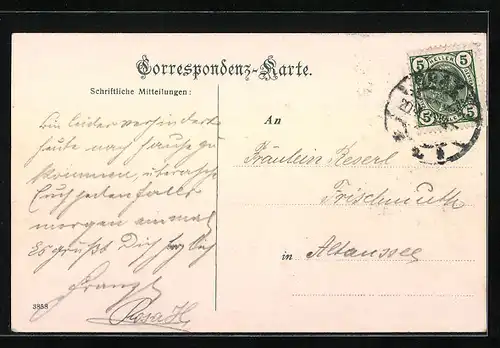 Correspondenz-Karte.
Schriftliche Mitteilungen:
Bin leider verhindert
heute nach Hause zu
kommen, überasche
Euch jedenfalls
morgen einmal
Es grüßt Dich herzlich
Franzl
Rosa H.
3858
An
Fräulein Reserl
Frischmuth
in Altaussee
5 HELLER 5
5 5